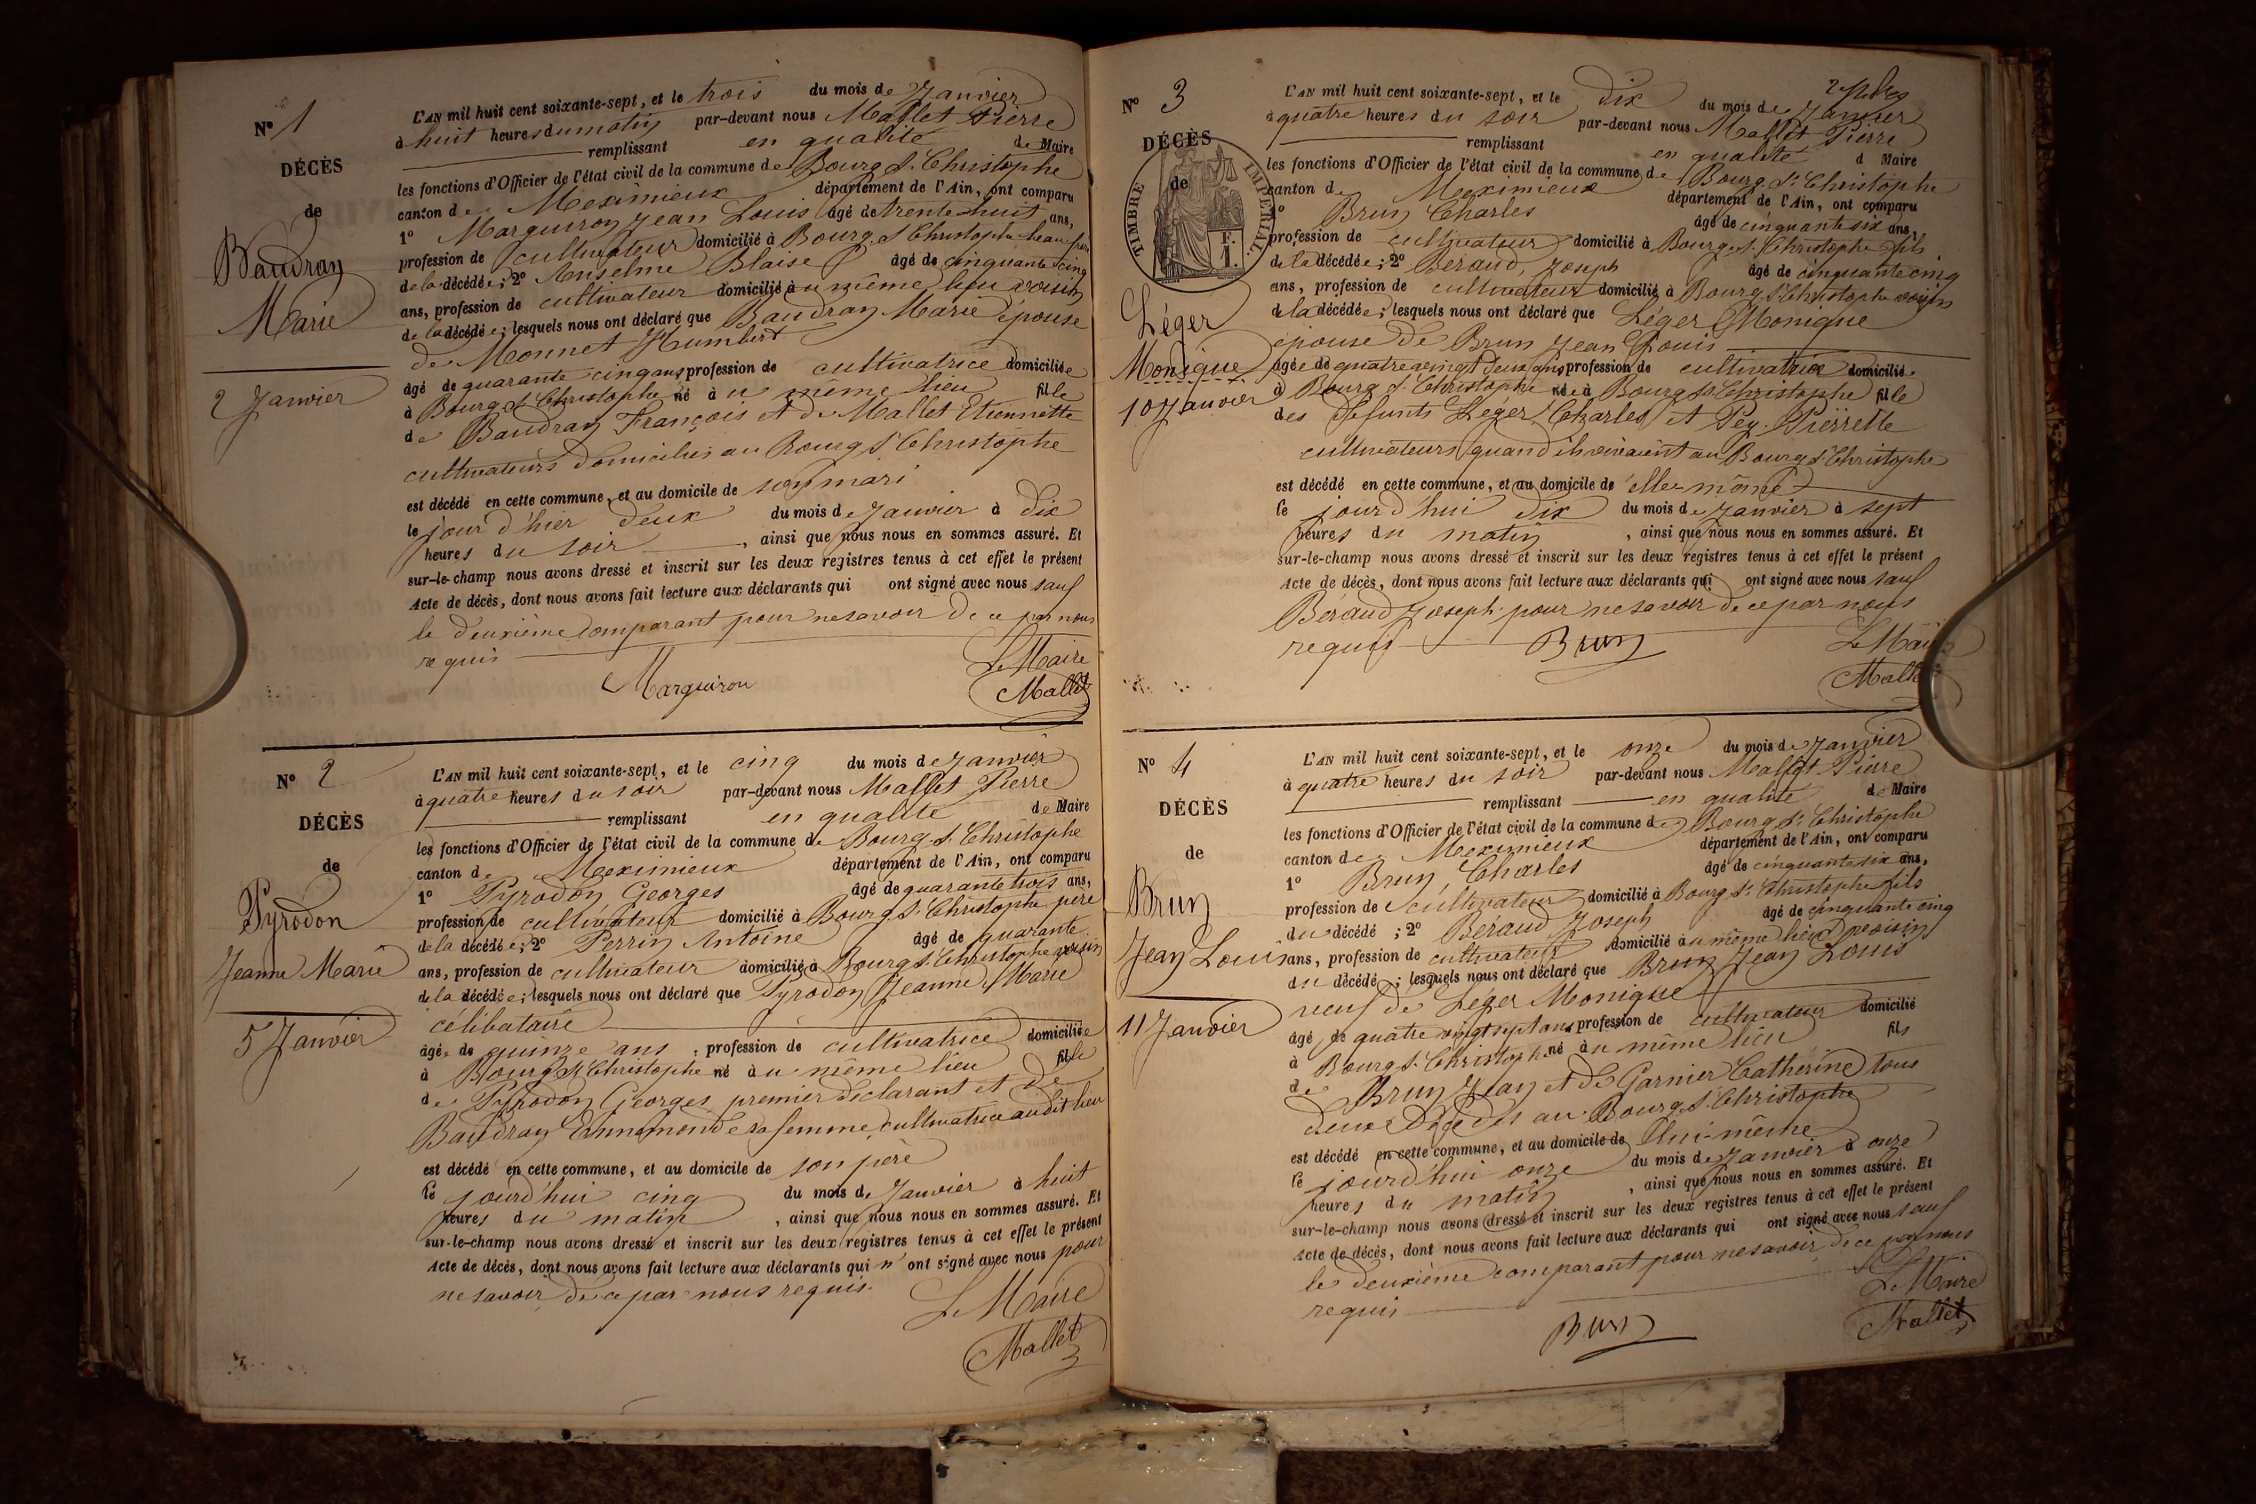 N° 1
DÉCÈS
de
Baudray
Marie
2 Janvier
L'AN mil huit cent soixante-sept, et le trois du mois de Janvier
à huit heures du matin par-devant nous Mallet Pierre
remplissant en qualité de Maire
les fonctions d'Officier de l'état civil de la commune de Bourg St Christophe
canton de Meximieux département de l'Ain, ont comparu
1° Marguiron Jean Louis âgé de trente huit ans,
profession de cultivateur domicilié à Bourg St Christophe beau frère
de la décédée; 2° Anselme Blaise âgé de cinquante cinq
ans, profession de cultivateur domicilié au même lieu voisin
de la décédée; lesquels nous ont déclaré que Baudray Marie épouse
de Monnet Humbert
âgé de quarante cinq ans profession de cultivatrice domiciliée
à Bourg St Christophe né au même lieu fille
de Baudray François et de Mallet Etiennette
cultivateurs domiciliés au Bourg St Christophe
est décédé en cette commune, et au domicile de son mari
le jour d'hier deux du mois de Janvier à dix
heures du soir, ainsi que nous nous en sommes assuré. Et
sur-le-champ nous avons dressé et inscrit sur les deux registres tenus à cet effet le présent
Acte de décès, dont nous avons fait lecture aux déclarants qui ont signé avec nous sauf
le deuxième comparant pour ne savoir de ce par nous
requis
Le Maire
Marguiron
Mallet
N° 2
DÉCÈS
de
Pyrodon
Jeanne Marie
5 Janvier
L'AN mil huit cent soixante-sept, et le cinq du mois de Janvier
à quatre heures du soir par-devant nous Mallet Pierre
remplissant en qualité de Maire
les fonctions d'Officier de l'état civil de la commune de Bourg St Christophe
canton de Meximieux département de l'Ain, ont comparu
1° Pyrodon Georges âgé de quarante trois ans,
profession de cultivateur domicilié à Bourg St Christophe père
de la décédée; 2° Perrin Antoine âgé de quarante
ans, profession de cultivateur domicilié à Bourg St Christophe voisin
de la décédée; lesquels nous ont déclaré que Pyrodon Jeanne Marie
célibataire
âgée de quinze ans, profession de cultivatrice domiciliée
à Bourg St Christophe né au même lieu fille
de Pyrodon Georges premier déclarant et de
Baudray Ennemonde sa femme, cultivatrice audit lieu
est décédé en cette commune, et au domicile de son père
le jourd'hui cinq du mois de Janvier à huit
heures du matin, ainsi que nous nous en sommes assuré. Et
sur-le-champ nous avons dressé et inscrit sur les deux registres tenus à cet effet le présent
Acte de décès, dont nous avons fait lecture aux déclarants qui n'ont signé avec nous pour
ne savoir de ce par nous requis.
Le Maire
Mallet
N° 3
DÉCÈS
de
TIMBRE IMPÉRIAL
F.
1.
Léger
Monique
10 Janvier
L'AN mil huit cent soixante-sept, et le dix du mois de Janvier
à quatre heures du soir par-devant nous Mallet Pierre
remplissant en qualité d Maire
les fonctions d'Officier de l'état civil de la commune de Bourg St Christophe
canton de Meximieux département de l'Ain, ont comparu
1° Brun Charles âgé de cinquante six ans,
profession de cultivateur domicilié à Bourg St Christophe fils
de la décédée; 2° Béraud, Joseph âgé de cinquante cinq
ans, profession de cultivateur domicilié à Bourg St Christophe voisin
de la décédée; lesquels nous ont déclaré que Léger Monique
épouse de Brun Jean Louis
âgée de quatre vingt deux ans profession de cultivatrice domiciliée
à Bourg St Christophe née à Bourg St Christophe fille
des défunts Léger Charles et Pey Pierrette
cultivateurs quand ils vivaient au Bourg St Christophe
est décédé en cette commune, et au domicile de elle-même
le jourd'hui dix du mois de Janvier à sept
heures du matin, ainsi que nous nous en sommes assuré. Et
sur-le-champ nous avons dressé et inscrit sur les deux registres tenus à cet effet le présent
Acte de décès, dont nous avons fait lecture aux déclarants qui ont signé avec nous sauf
Béraud Joseph pour ne savoir de ce par nous
requis
Brun
Le Maire
Mallet
N° 4
DÉCÈS
de
Brun
Jean Louis
11 Janvier
L'AN mil huit cent soixante-sept, et le onze du mois de Janvier
à quatre heures du soir par-devant nous Mallet Pierre
remplissant en qualité de Maire
les fonctions d'Officier de l'état civil de la commune de Bourg St Christophe
canton de Meximieux département de l'Ain, ont comparu
1° Brun Charles âgé de cinquante six ans,
profession de cultivateur domicilié à Bourg St Christophe fils
du décédé; 2° Béraud Joseph âgé de cinquante cinq
ans, profession de cultivateur domicilié au même lieu voisin
du décédé; lesquels nous ont déclaré que Brun Jean Louis
veuf de Léger Monique
âgé de quatre vingt sept ans profession de cultivateur domicilié
à Bourg St Christophe né au même lieu fils
de Brun Jean et de Garnier Catherine tous
deux décédés au Bourg St Christophe
est décédé en cette commune, et au domicile de lui-même
le jourd'hui onze du mois de Janvier à onze
heures du matin, ainsi que nous nous en sommes assuré. Et
sur-le-champ nous avons dressé et inscrit sur les deux registres tenus à cet effet le présent
Acte de décès, dont nous avons fait lecture aux déclarants qui ont signé avec nous sauf
le deuxième comparant pour ne savoir de ce par nous
requis
Le Maire
Brun
Mallet